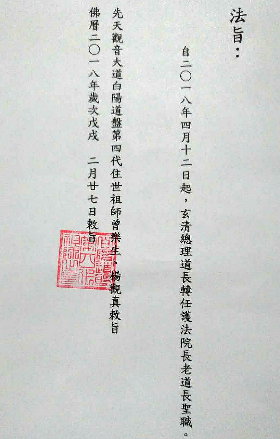 法旨：
自二〇一八年四月十二日起，玄清總理道長轉任護法院長老道長聖職。
先天觀音大道白陽道盤第四代住世祖師曾樂生、楊觀真敕旨
佛曆二〇一八年歲次戊戌 二月廿七日敕旨